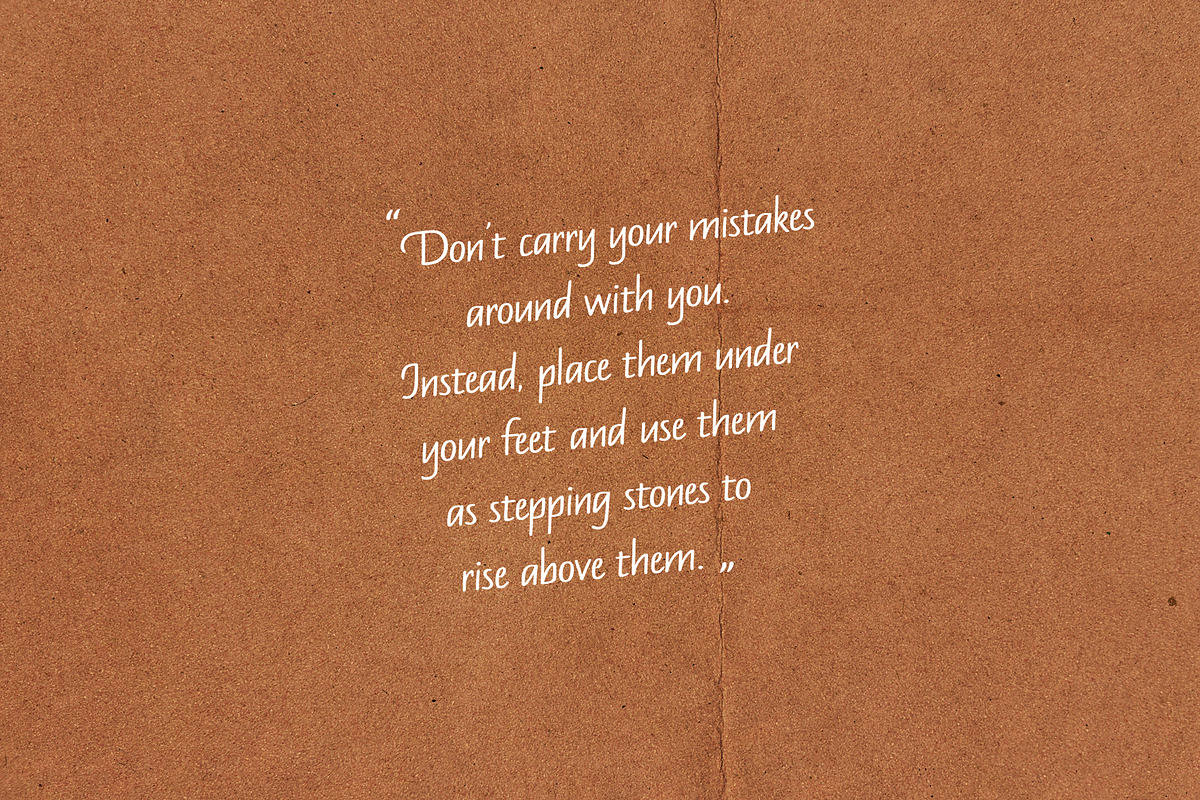 “Don't carry your mistakes
around with you.
Instead, place them under
your feet and use them
as stepping stones to
rise above them. „